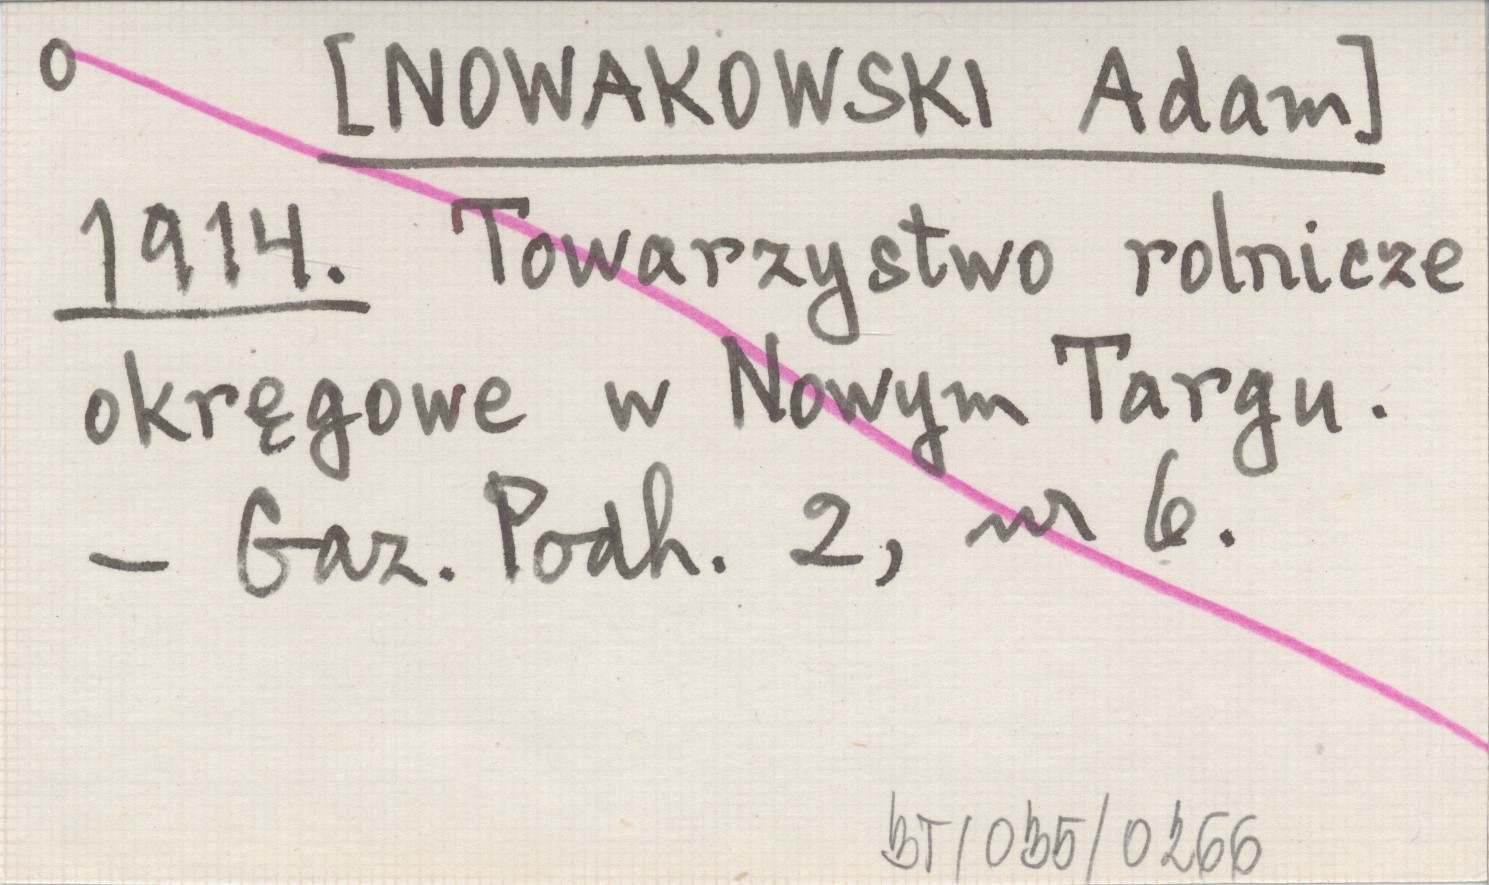 o [NOWAKOWSKI Adam]
1914. Towarzystwo rolnicze
okręgowe w Nowym Targu.
– Gaz. Podh. 2, nr 6.
BT/035/0266